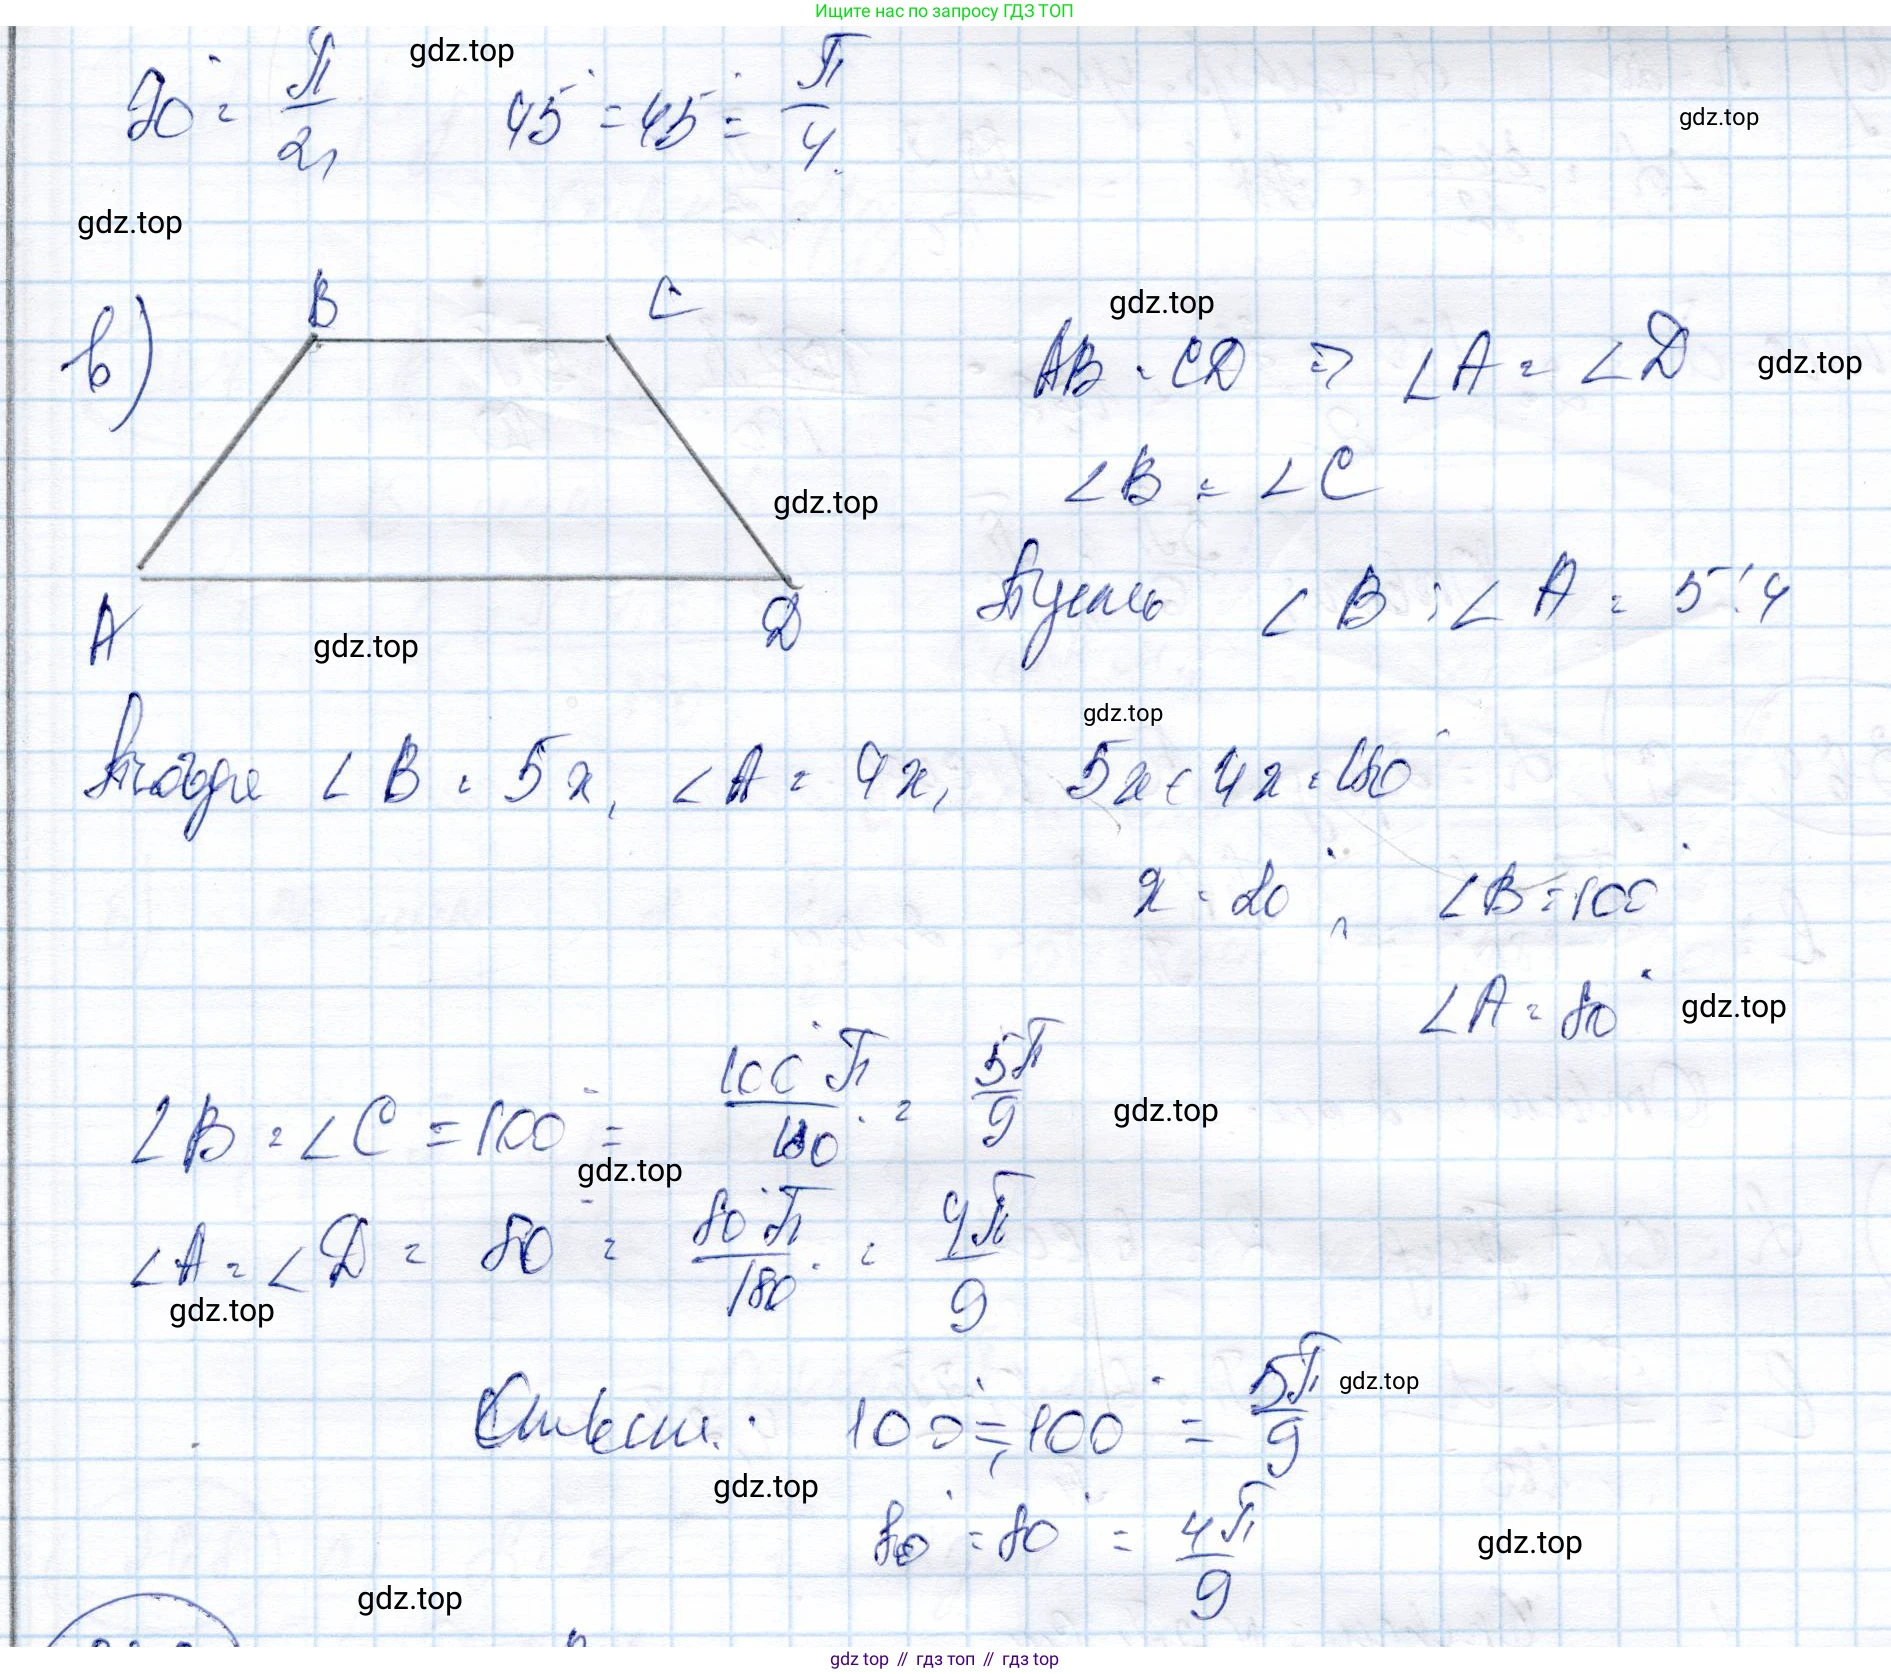 Ищите нас по запросу ГДЗ ТОП
90° = П/2, 45° = 45° = П/4.
gdz.top
gdz.top
gdz.top
в)
B C
A D
gdz.top
AB = CD => ∠A = ∠D
gdz.top
∠B = ∠C
gdz.top
Пусть ∠B : ∠A = 5 : 4
gdz.top
gdz.top
Тогда ∠B = 5x, ∠A = 4x, 5x + 4x = 180°
x = 20°, ∠B = 100°
∠A = 80°
gdz.top
∠B = ∠C = 100° = 100°П/180° = 5П/9
gdz.top
gdz.top
∠A = ∠D = 80° = 80°П/180° = 4П/9
gdz.top
Ответ: 100° = 100° = 5П/9
gdz.top
gdz.top
80° = 80° = 4П/9
gdz.top
gdz.top
gdz top // гдз топ // гдз top